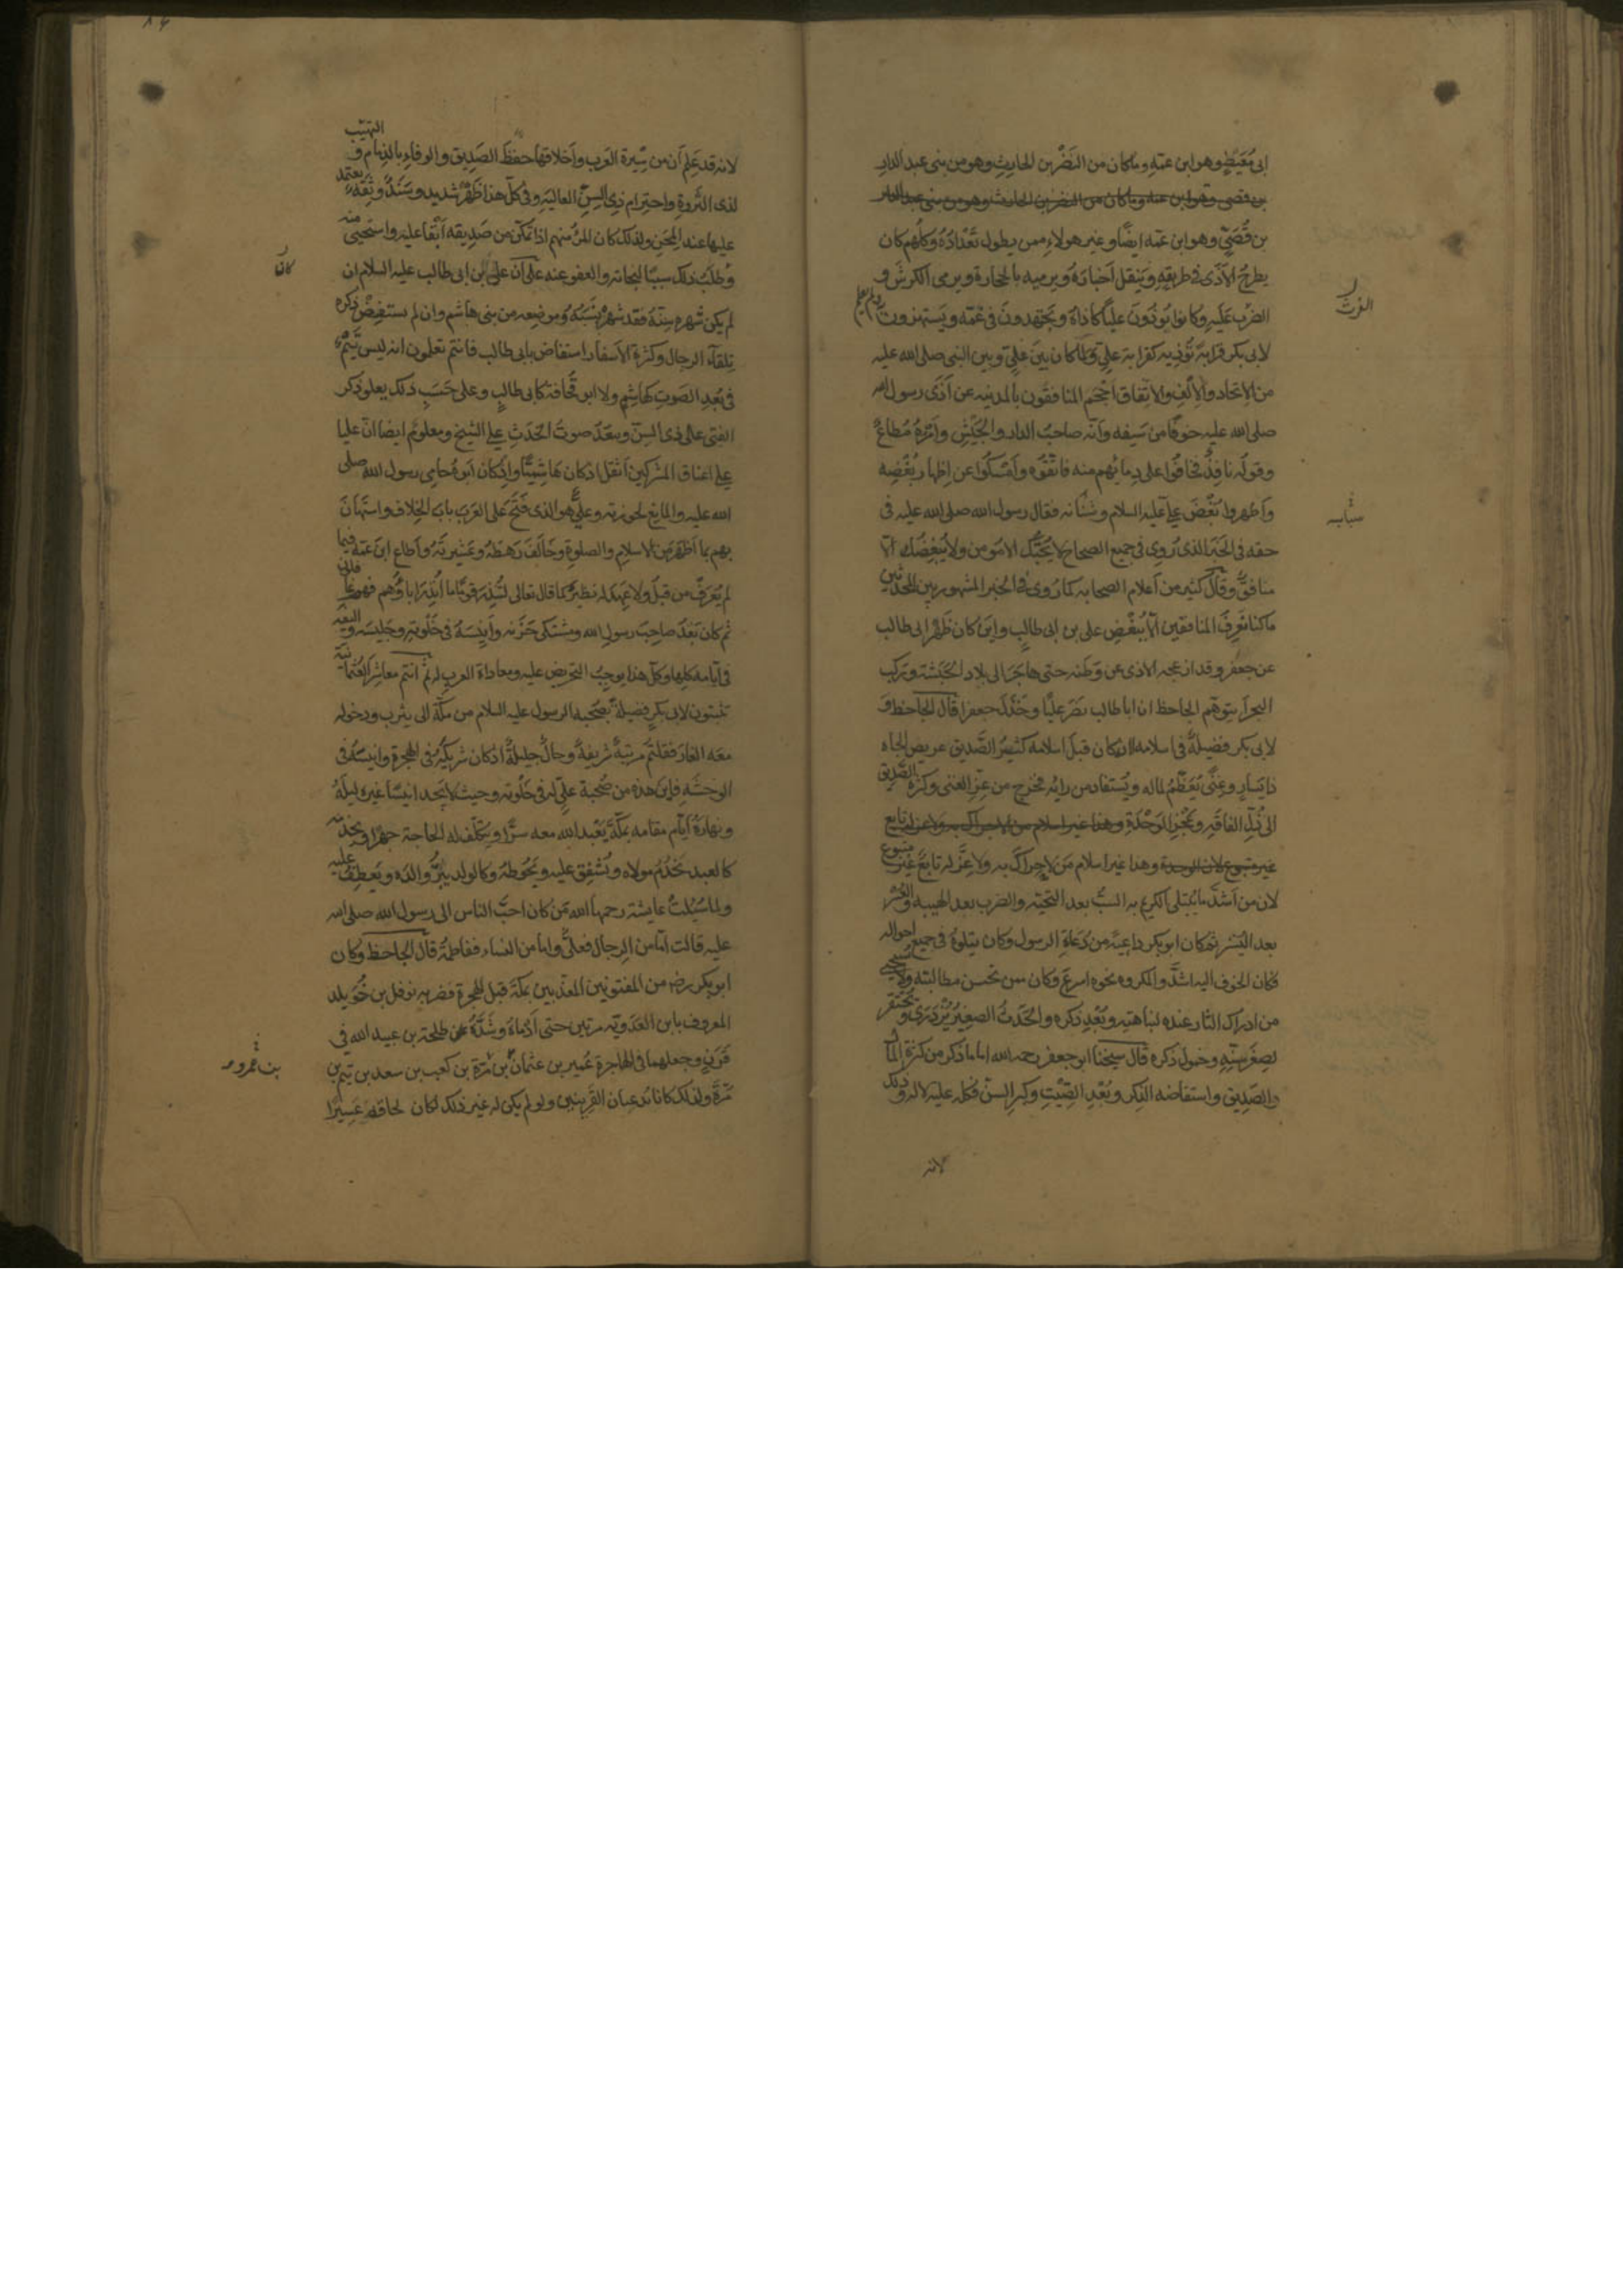 ابى مُعَيطٍ وهو ابن عمّهِ وما كان من النَضْر بن الحارِثِ وهو من بنى عبد الدّارِ
بن قصى وهو ابن عمه وما كان من النضر بن الحارث وهو من بنى عبد الدار
بن قُصَىٍّ وهو ابن عمّه ايضًا وغير هولاءِ ممن يطول تَعْدادُهُ وكلّهم كان
يطرحُ الاَذَى فى طريقِهِ ويَنقل اَخبارَهُ ويرميه بالحجارة ويرمى الكرشَ و
الفرث
الضرْب عَلَيهِ وكانوا يُوذُونَ عليًّا كاَذاهُ ويَجتهدونَ فى غمّه ويَستهزون
لابى بكر قرابةٌ تُؤذيه كقرابة علِىٍّ ولمّا كان بَينَ علِىٍّ وبين النبى صلى الله عليه
من الاتحاد والاِلْفِ والاتّفاق اَحْجَم المنافقون بالمدينه عن اَذَى رسول الله
صلى الله عليه خوفًا من سَيفه واَنّه صاحبُ الدار والجَيْش واَمْرُهُ مُطاعٌ
وقولُه نافِذٌ فخافُوا على دِمائهم منه فاتّقَوْه واَمْسَكُوا عن اِظهار بُغْضِه
واَظهروا بُغْضَ علىّ عليه السلام وشنَانه فقال رسول الله صلى الله عليه فى
حقه فى الخَبَر الذى رُوِى فى جميع الصحاح لا يُحِبُّك الا مؤمن ولا يُبْغِضُك الّا
منافقٌ وقال كثير من اَعلام الصحابه كما رُوى فى الخبر المشهور بين المحدّثين
ما كنا نَعرِفُ المنافقين اِلّا بِبُغْضِ على بن ابى طالبٍ واين كان ظَهْر ابى طالب
عن جعفر وقد ازعجه الاذى عن وَطَنه حتى هاجَرَ الى بلاد الحَبَشَة وركب
البحر اَيتوهّم الجاحظ ان ابا طالب نصَر عليًّا وخَذَلَ جعفرا قال الجاحظ و
لابى بكر فضيلةٌ فى اسلامه انه كان قبل اسلامه كثيرُ الصَّديق عريض الجاه
ذا يَسارٍ وغِنًى يُعَظَّمُ لماله ويُستفاد من رايه فخرج من عِزّ الغِنى وكثرة الصَّديق
الى ذُلِّ الفاقَهِ وعَجْزِ الوَحْدَةِ وهذا غير اسلام من لا حراك به ولا عز له تابع
غير متبوع لان الوحدة وهذا غير اسلام مَن لا حِراكَ به ولا عِزَّ له تابعٌ غير متبوع
لان من اَشدّ ما يُبتلى الكريم به السبُّ بعد التحيّه والضرب بعد الهيبه والعُسْر
بعد اليُسْر ثم كان ابو بكر داعِيةً من دُعَاةِ الرسول وكان يتلوهُ فى جميع احواله
فكان الخوف اليه اشدَّ والمكروه نحوه اسرعَ وكان ممن تحسن مطالبته ولا يستحى
من ادراك الثار عنده لنباهتهِ وبُعْدِ ذكره والحَدَثُ الصغيرُ يُزْدرَى ويُحْتَقر
لصِغَرِ سِنّهِ وخُمول ذكره قال شيخنا ابو جعفر رحمه الله اما ما ذكر من كثرة المال
والصَّديق واستفاضه الذِكر وبُعْدِ الصِّيْتِ وكِبرِ السنّ فكله عليه لا له وذلك
لانه
لانه قد عَلِمَ اَنّ من سِيْرةِ العَرب واَخلاقها حفظَ الصَدِيق والوفاءِ بالذِمام و التهيّب
لذى الثَّروةِ واحتِرام ذى السِنّ العاليهِ وفى كلّ هذا ظَهْرٌ شديد وسَنَدٌ وثِقَهٌ يعتمد
عليها عند المِحَنِ ولذلك كان المرؤ منهم اذا تمكّن من صَدِيقه اَبْقا عليه واستَحيى منه
وطَلَبُ ذلك سببًا لنجاته والعفو عنه على اَنّ على بن ابى طالب عليه السلام ان
لم يكن شَهرهُ سِنّهُ فقد شهره نسَبُهُ ومَوضِعه من بنى هاشم وان لم يستفِضْ ذِكره
بلِقَاء الرجال وكثرة الاَسفار استفاض بابى طالب فانتم تعلمون انه ليس تَيْمٌ
فى بُعدِ الصَوتِ كهاشِمٍ ولا ابو قُحَافة كابى طالبٍ وعلى حَسَبِ ذلك يعلو ذكر
الفتى على ذى السِنّ ويبعُدُ صوتُ الحَدَثِ على الشيخ ومعلومٌ ايضا ان عليا
على اعناق المشركين اَثقلُ اذ كان هاشِميًّا واذْ كان ابوهُ حامِى رسول الله صلى
الله عليه والمانِع لحوزته وعلِىٌّ هو الذى فتَحَ على العَرب بابَ الخِلاف واستَهانَ
بهم بما اَظهَر من الاسلامِ والصلوةِ وخالَفَ رهطَهُ وعشِيرتَهُ واَطاع ابنَ عمّه فيما
لم يُعرَف من قبلُ ولا عُهِدَ له نظيرٌ كما قال تعالى لتُنْذِرَ قومًا ما اُنذِرَ اباؤُهم فهم غافلون
ثم كان بَعدُ صاحِبَ رسولِ الله ومشتكى حَزَنه واَنِيسَهُ فى خَلْوتهِ وجليسَه واليفَه
فى اَيّامه كلِها وكل هذا يوجِبُ التحريض عليه ومعاداة العرب له ثم انتم معاشر العُثمانيّة
تثبتون لابى بكرٍ فضيلةً بصُحبه الرسول عليه السلام من مكّة الى يثرب ودخوله
معَه الغارَ فقلتم مرتبةٌ شريفةٌ وحالٌ جليلةٌ اذ كان شَريكُه فى الهِجرة وانيسُه فى
الوحشَهِ فاين هذه من صُحبة علىٍّ له فى خلْوته وحيث لا يَجدا انيسًا غيره ليلَهُ
ونهارَهُ اَيّامَ مقامه بمكّةَ يَعْبد الله معه سرًّا ويتكلّف له الحاجة جهرًا ويخدمُه
كالعبد يَخْدُمُ مولاه ويُشْفِق عليه ويَحُوطهُ وكالولدِ يَبَرُّ والدَه ويَعطِفُ عليه
ولما سُئِلَتْ عايشة رحمها الله مَن كان احبّ الناس الى رسول الله صلى الله
عليه قالت امّا من الرجال فعلىٌّ واما من النساء ففاطمةُ قال الجاحظ وكان
ابو بكر رضه من المفتونين المعذبين بمكّة قبل الهجرة فضربه نوفل بن خُوَيلد
المعروف بابن العَدَويّه مرتين حتى اَدْماهُ وشَدَّهُ مع طلحة بن عبيد الله فى
قَرَنٍ وجعلهما فى الهاجرة عُميرُ بن عثمانَ بن مُرّة بن كعب بن سعد بن تيم بن
بن عمرو
مُرّةَ ولذلك كانا يُدعيان القَرِينين ولو لم يكن له غير ذلك لكان لحاقه عَسِيرًا